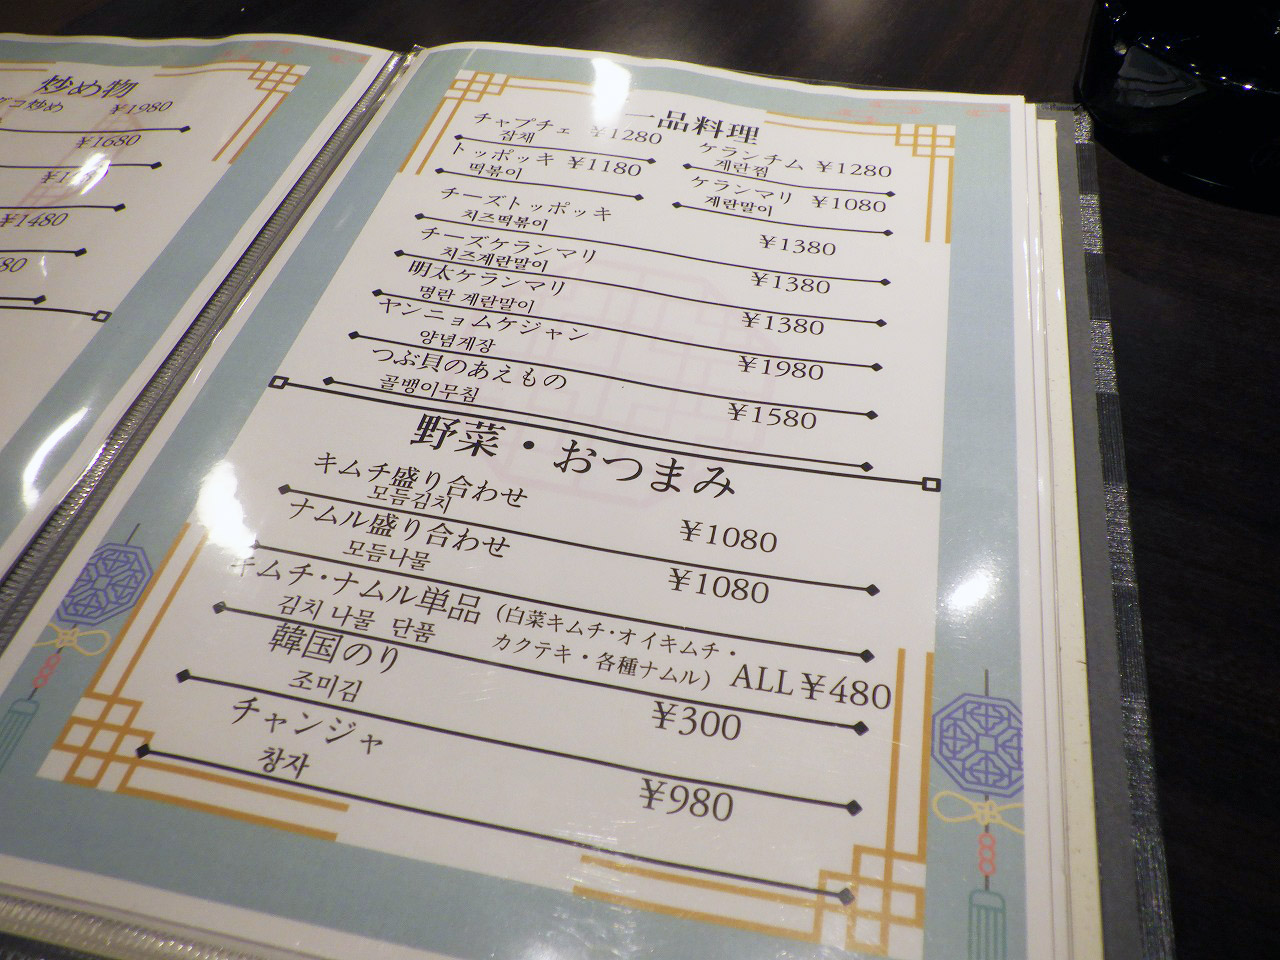 炒め物
炒め ¥1980
¥1680
¥1480
一品料理
チャプチェ ¥1280
잡채
ケランチム ¥1280
계란찜
トッポッキ ¥1180
떡볶이
ケランマリ ¥1080
계란말이
チーズトッポッキ
치즈떡볶이 ¥1380
チーズケランマリ
치즈계란말이 ¥1380
明太ケランマリ
명란 계란말이 ¥1380
ヤンニョムケジャン
양념게장 ¥1980
つぶ貝のあえもの
골뱅이무침 ¥1580
野菜・おつまみ
キムチ盛り合わせ
모듬김치 ¥1080
ナムル盛り合わせ
모듬나물 ¥1080
キムチ・ナムル単品 (白菜キムチ・オイキムチ・
김치 나물 단품 カクテキ・各種ナムル) ALL¥480
韓国のり
조미김 ¥300
チャンジャ
창자 ¥980